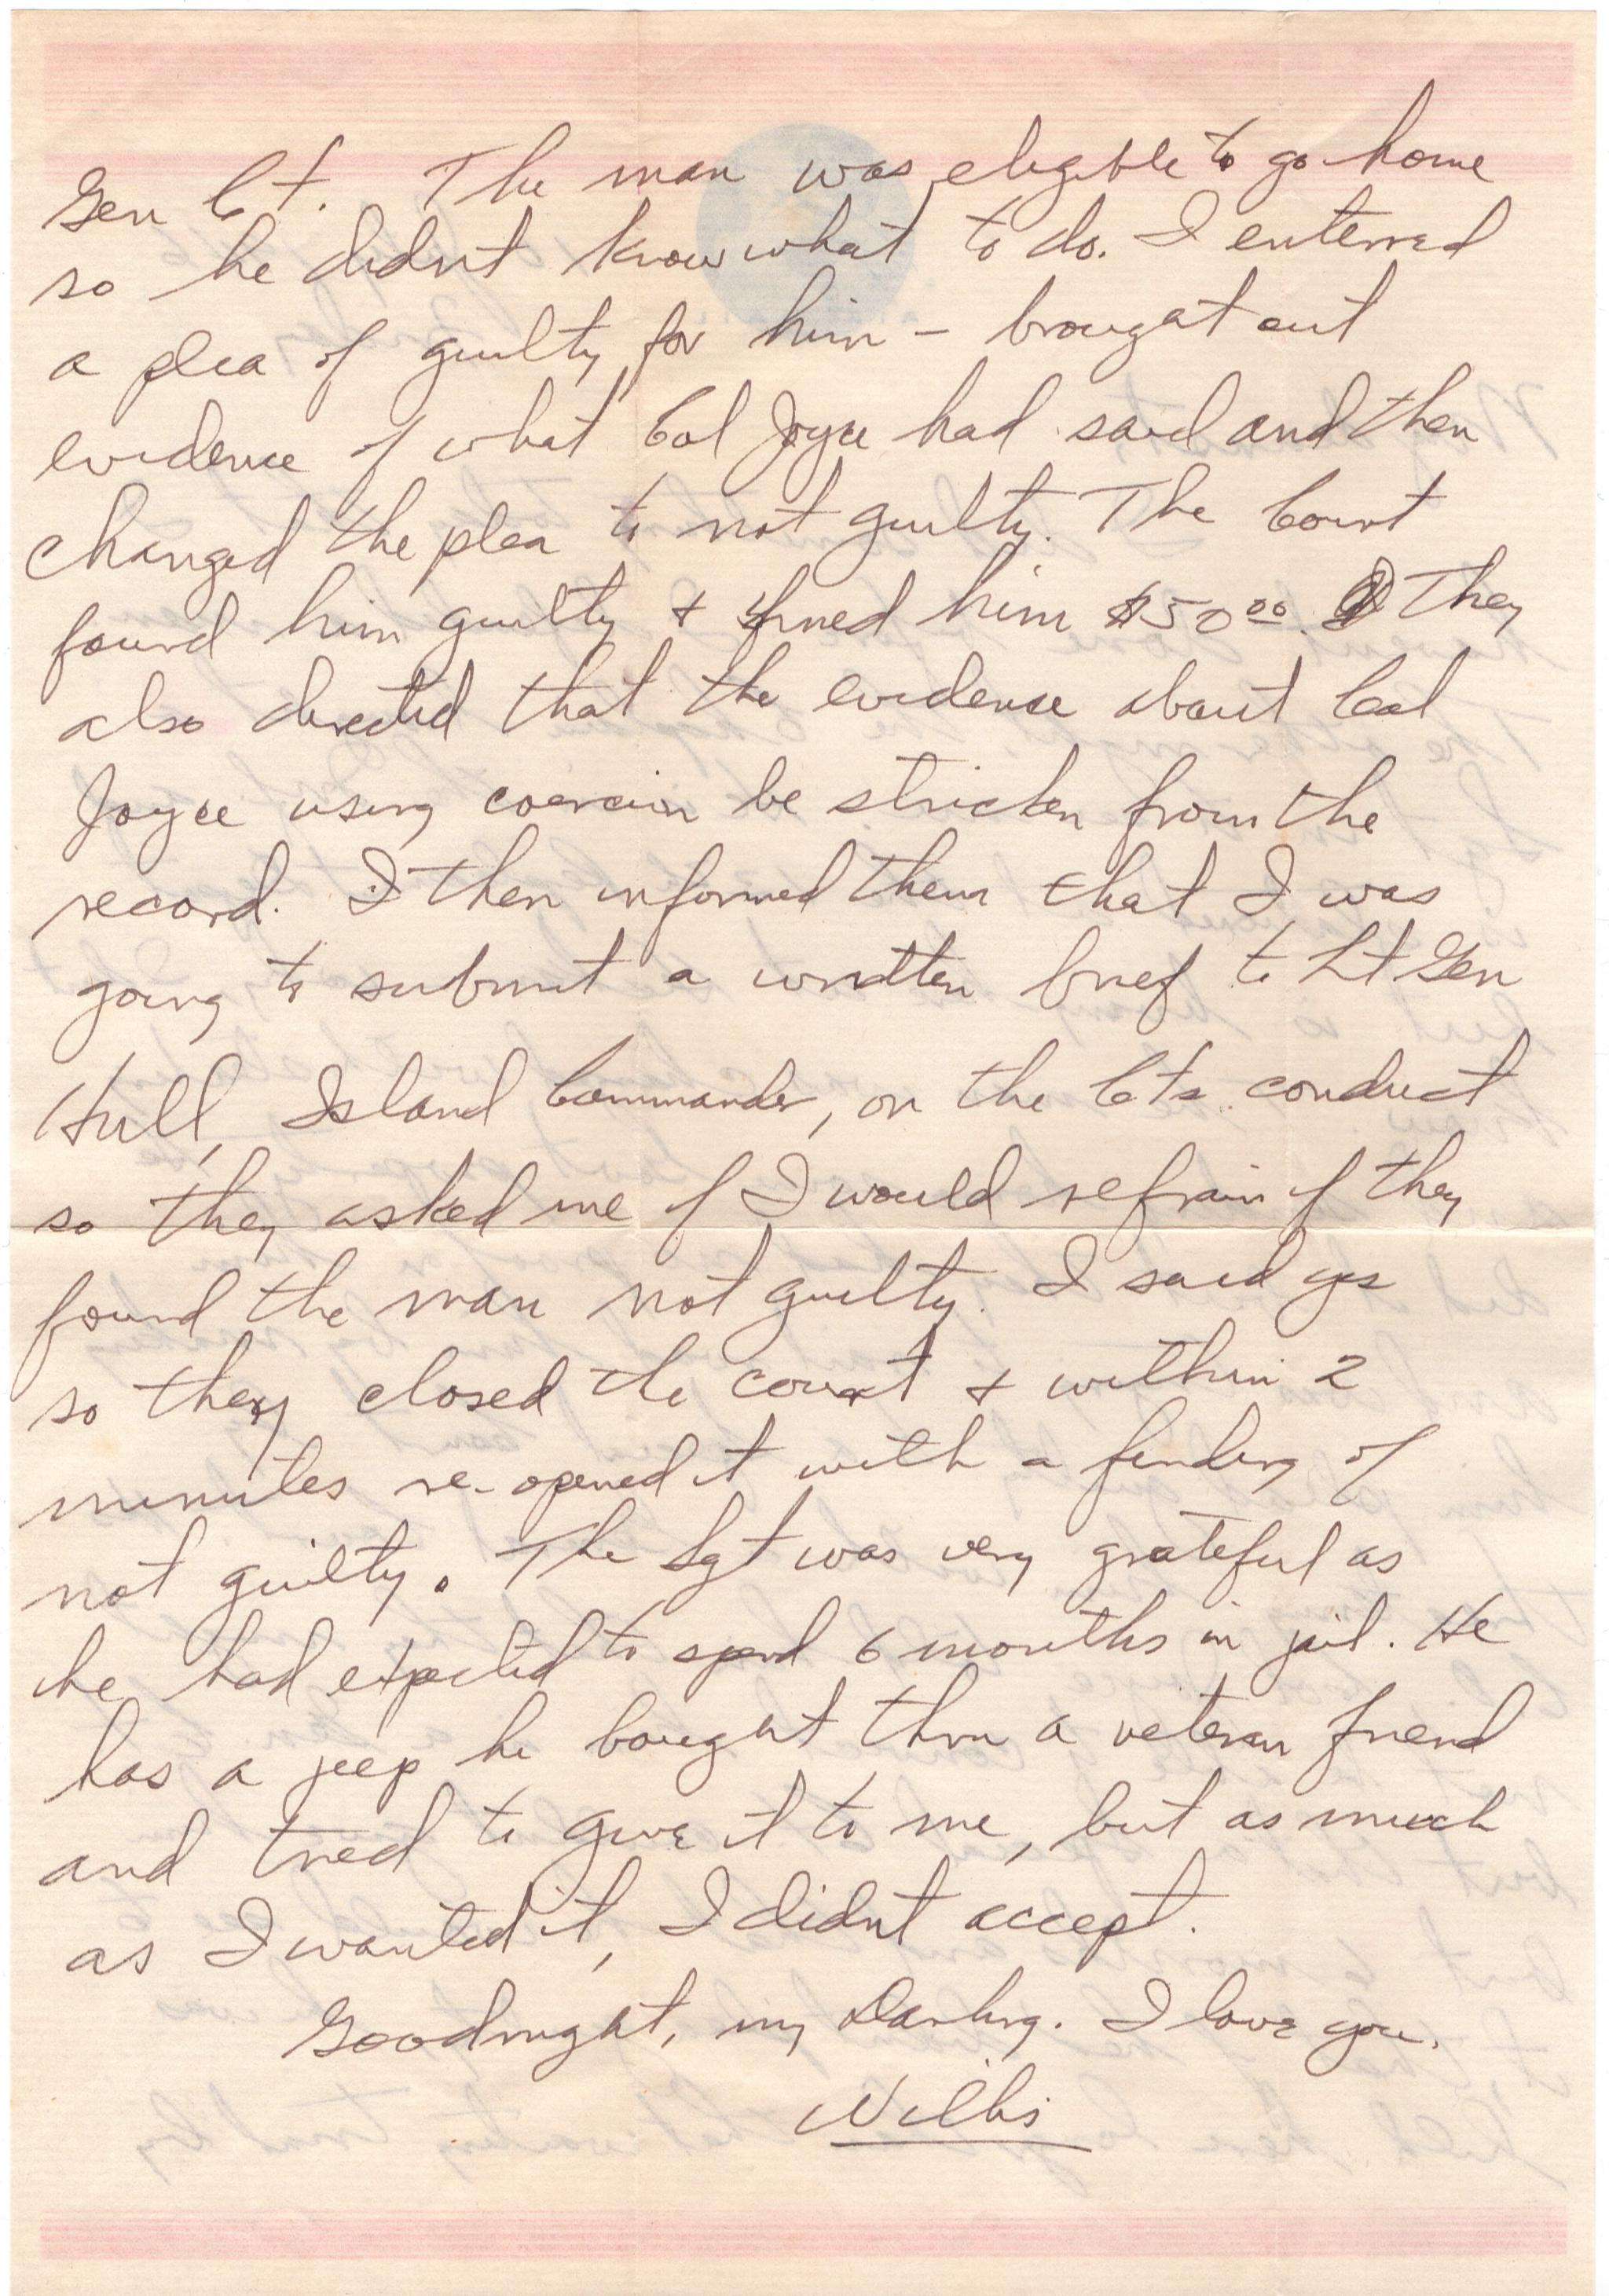 Gen Ct. The man was eligible to go home
so he didn't know what to do. I enterred
a plea of guilty for him – brought out
evidence of what Col Joyce had said and then
changed the plea to not guilty. The Court
found him guilty & fined him $50.00. They
also directed that the evidence about Col
Joyce using coercion be stricken from the
record. I then informed them that I was
going to submit a written brief to Lt Gen
Hull, Island Commander, on the Cts conduct
so they asked me if I would refrain if they
found the man not guilty. I said yes
so they closed the court & within 2
minutes re-opened it with a finding of
not guilty. The Sgt was very grateful as
he had expected to spend 6 months in jail. He
has a jeep he bought thru a veteran friend
and tried to give it to me, but as much
as I wanted it, I didn't accept.
Goodnight, my Darling. I love you.
Willis